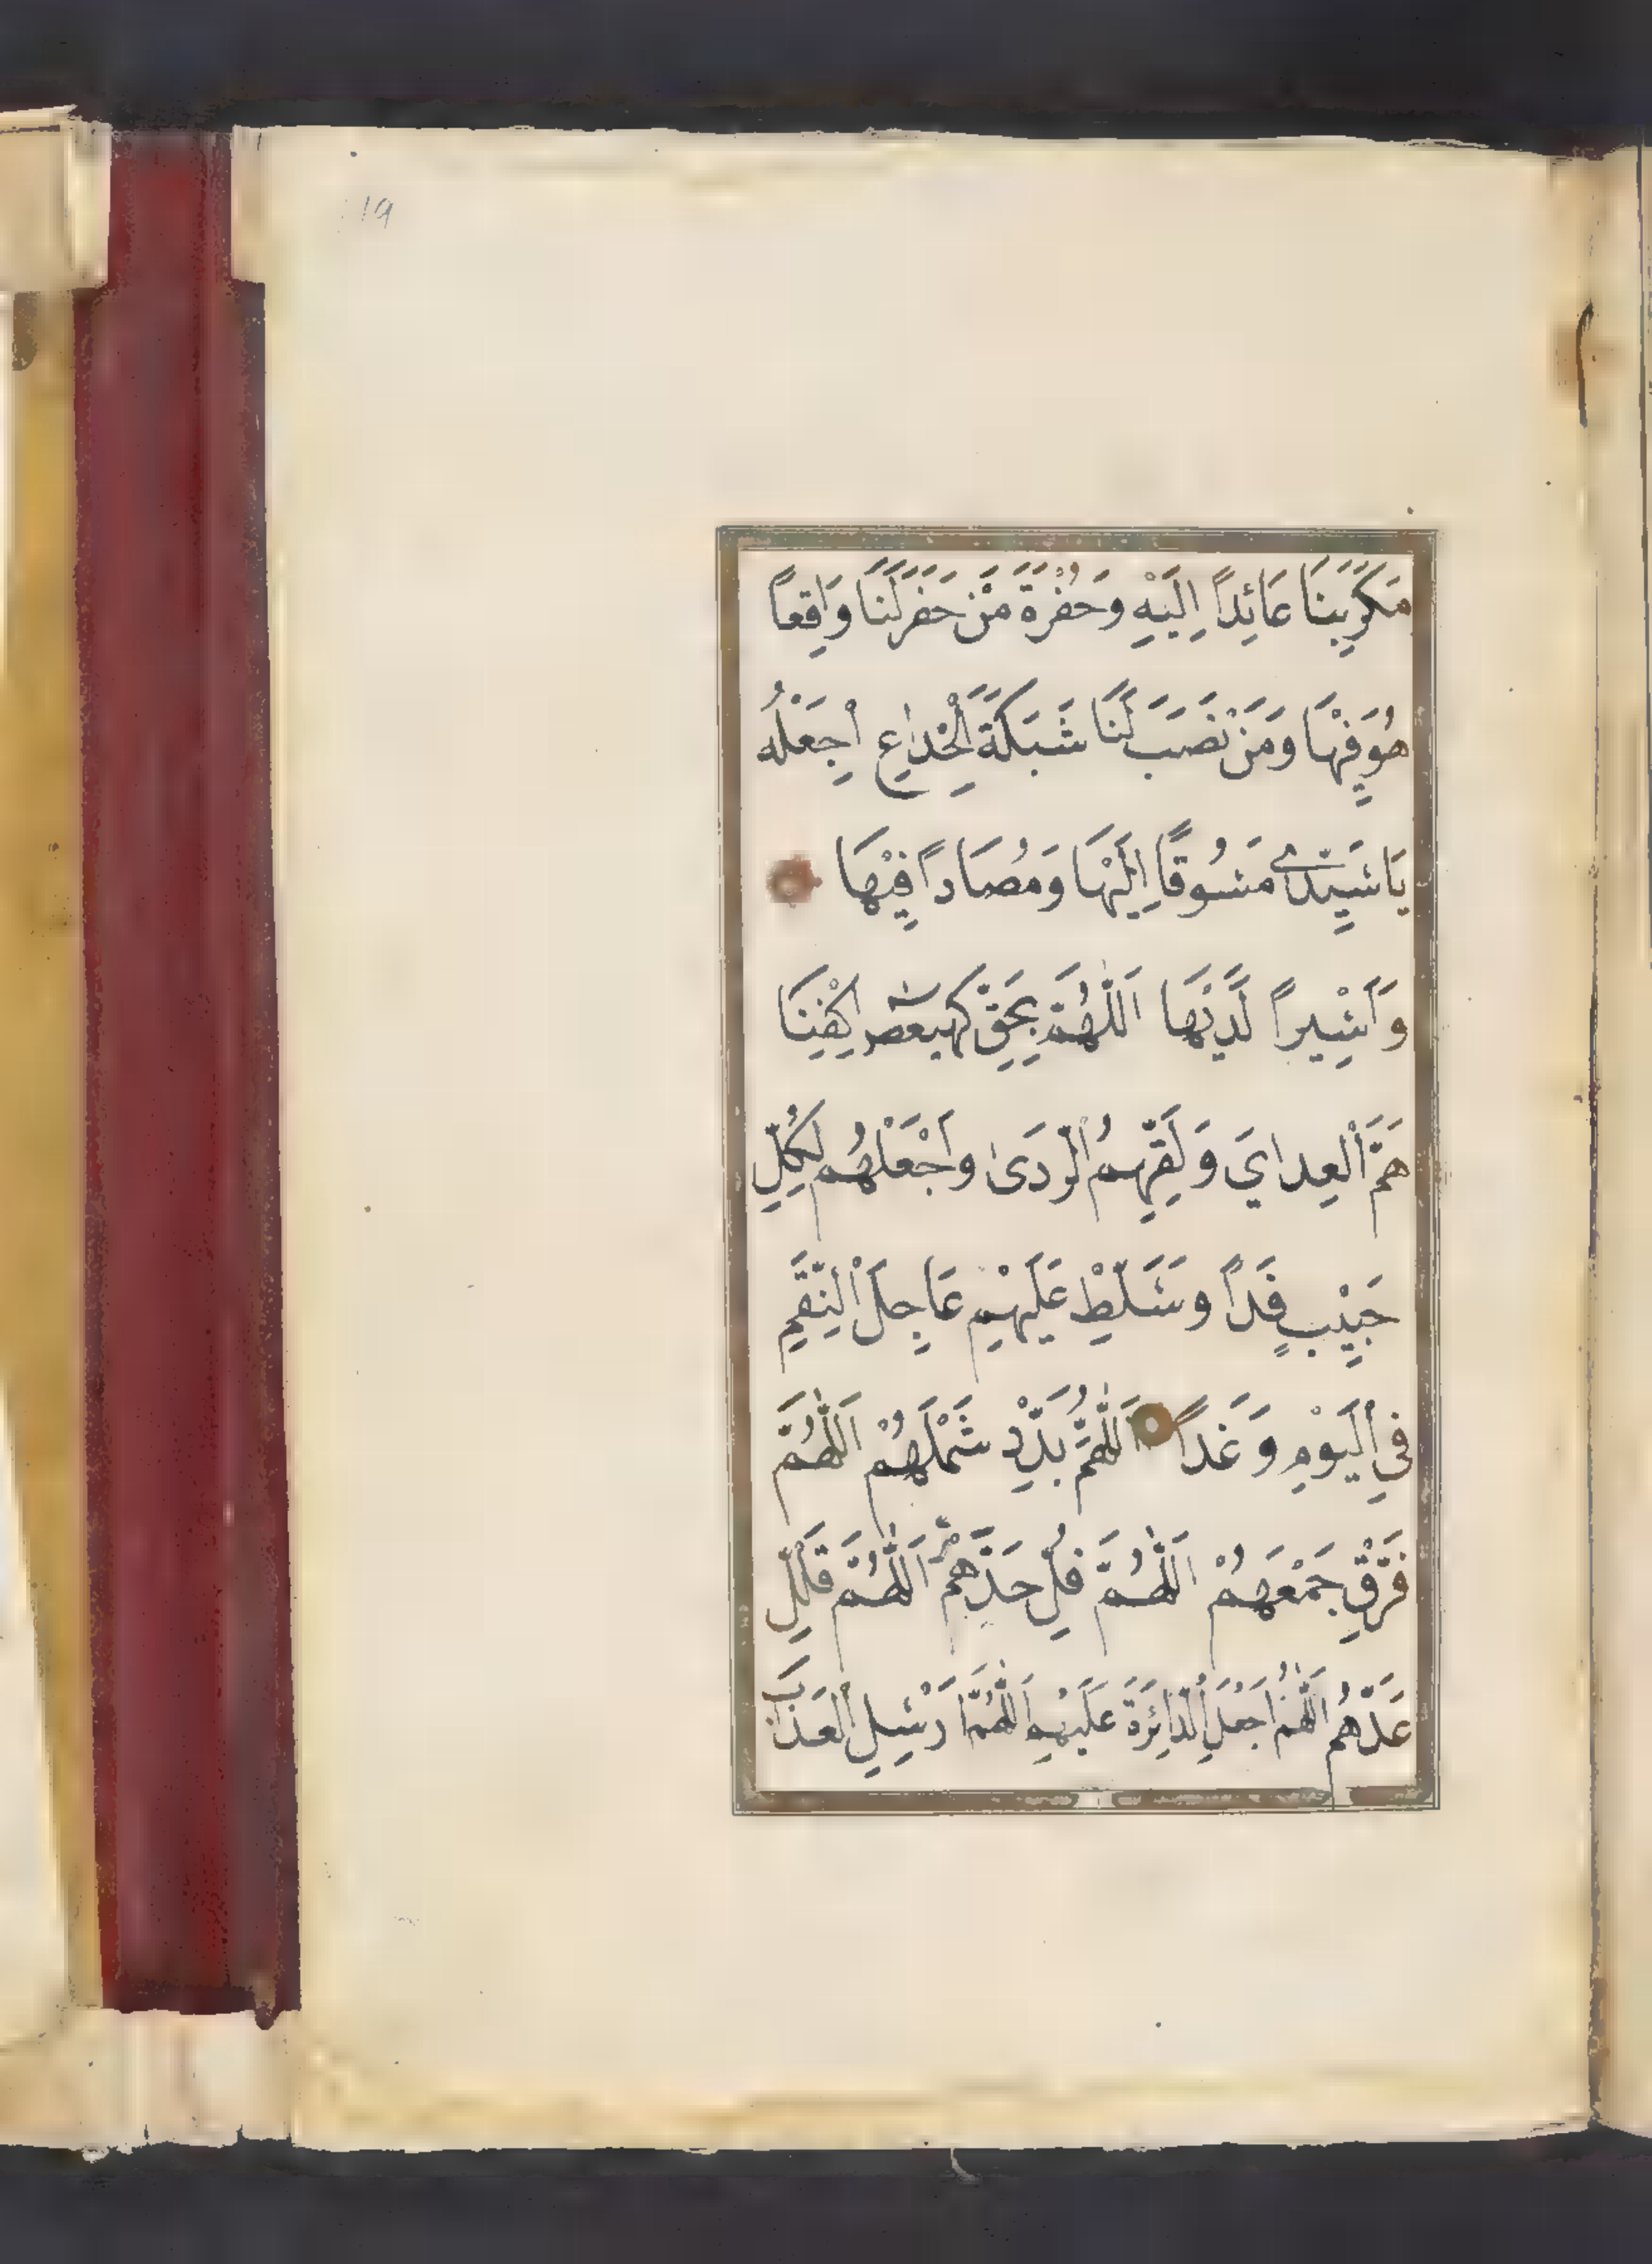 19
مَكَرَ بِنَا عَائِدًا اِلَيْهِ وَحُفْرَةَ مَنْ حَفَرَ لَنَا وَاقِعًا
هُوَ فِيْهَا وَمَنْ نَصَبَ لَنَا شَبَكَةَ الْخِدَاعِ اِجْعَلْهُ
يَا سَيِّدِي مَسُوقًا اِلَيْهَا وَمُصَادًا فِيْهَا
وَاَسِيْرًا لَدَيْهَا اَللّٰهُمَّ بِحَقِّ كهيعص اِكْفِنَا
هَمَّ الْعِدَايَ وَلَقِّهِمُ الرَّدَىٰ وَاجْعَلْهُمْ لِكُلِّ
حَبِيْبٍ فِدًا وَسَلِّطْ عَلَيْهِمْ عَاجِلَ النِّقَمِ
فِي الْيَوْمِ وَغَدًا اَللّٰهُمَّ بَدِّدْ شَمْلَهُمْ اَللّٰهُمَّ
فَرِّقْ جَمْعَهُمْ اَللّٰهُمَّ فُلَّ حَدَّهُمْ اَللّٰهُمَّ قَلِّلْ
عَدَّهُمْ اَللّٰهُمَّ اجْعَلِ الدَّائِرَةَ عَلَيْهِمْ اَللّٰهُمَّ اَرْسِلِ الْعَذَابَ